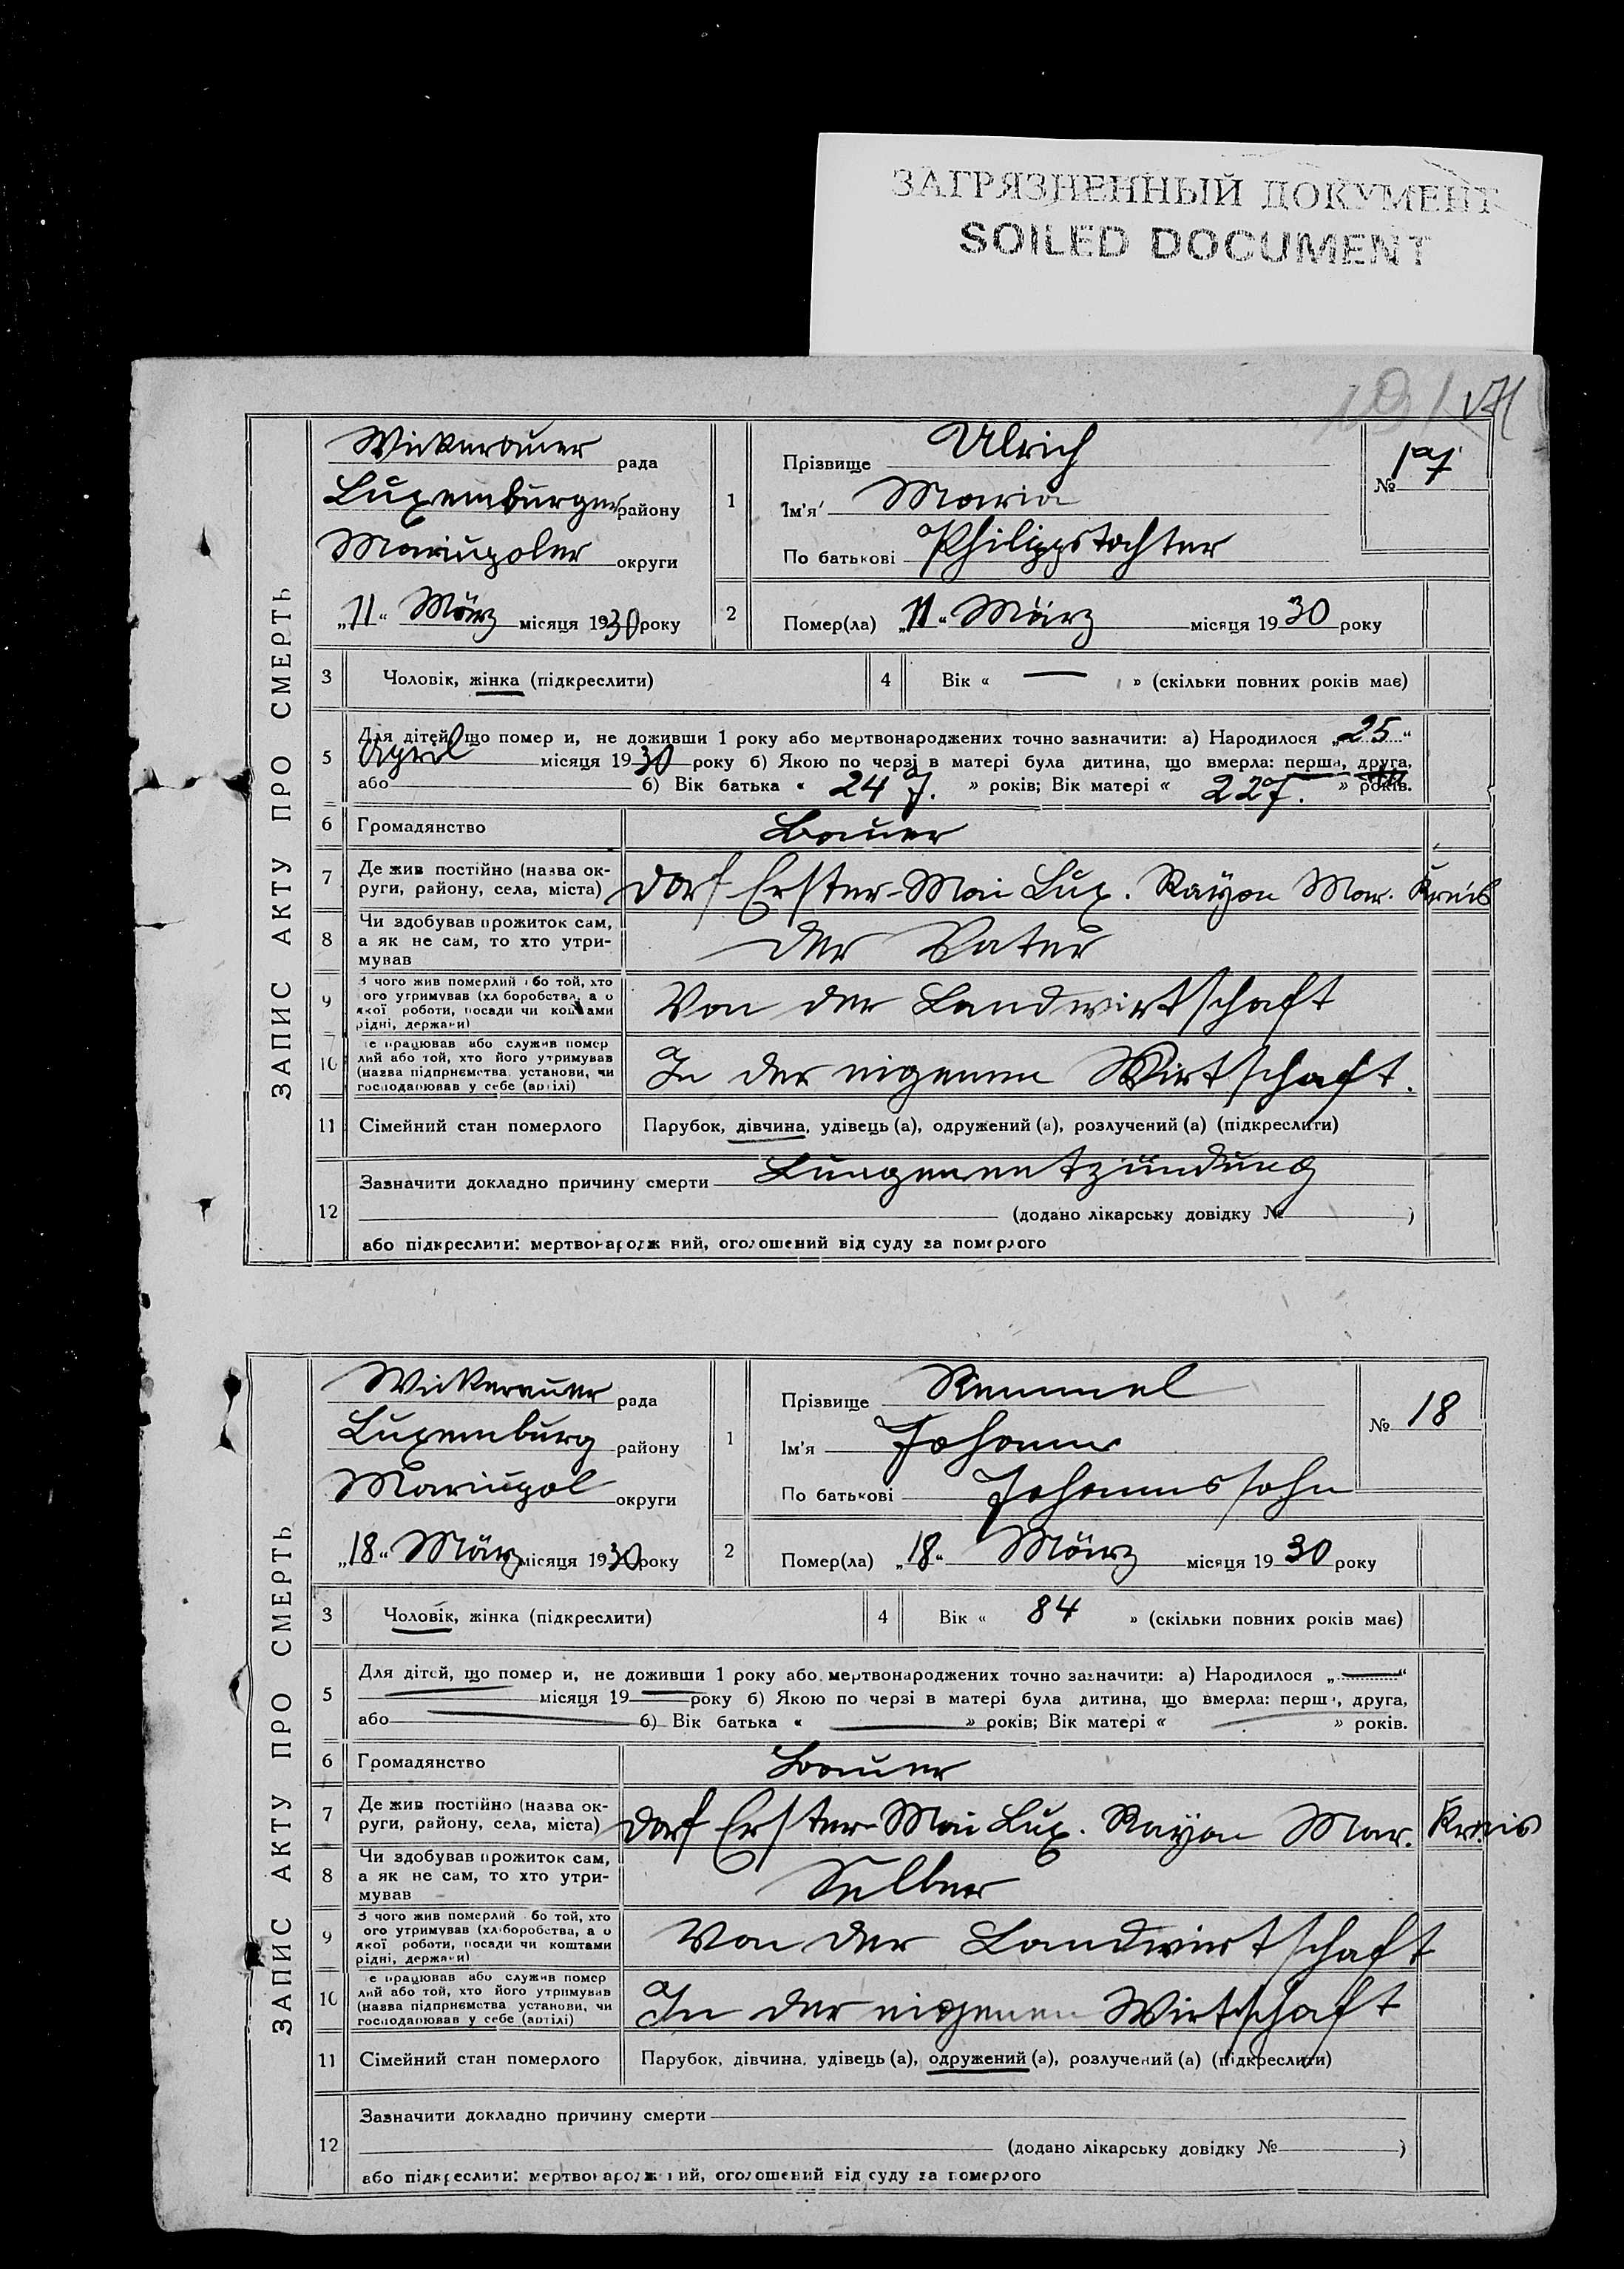 ЗАГРЯЗНЕННЫЙ ДОКУМЕНТ
SOILED DOCUMENT
ЗАПИС АКТУ ПРО СМЕРТЬ
Wickerauer рада
Luxemburger району
Mariupoler округи
„11“ März місяця 1930 року
1
Прізвище Ulrich
Ім'я Maria
По батькові Philippstochter
№ 17
2
Помер(ла) „11“ März місяця 1930 року
3 Чоловік, жінка (підкреслити)
4 Вік « — » (скільки повних років має)
5 Для дітей, що помер и, не доживши 1 року або мертвонароджених точно зазначити: а) Народилося „25“
April місяця 1930 року б) Якою по черзі в матері була дитина, що вмерла: перша, друга,
або б) Вік батька « 24 J. » років; Вік матері « 22 J. » років.
6 Громадянство Bauer
7 Де жив постійно (назва ок-
руги, району, села, міста) Dorf Erster-Mai Lux. Rayon Mar. Kreis
8 Чи здобував прожиток сам,
а як не сам, то хто утри-
мував
der Vater
9 З чого жив померлий або той, хто
ого утримував (хліборобства, а о
якої роботи, посади чи коштами
рідні, держави)
Von der Landwirtschaft
10 е працював або служив помер
лий або той, хто його утримував
(назва підприємства, установи, чи
господарював у себе (артілі)
In der eigenen Wirtschaft.
11 Сімейний стан померлого Парубок, дівчина, удівець (а), одружений (а), розлучений (а) (підкреслити)
12 Зазначити докладно причину смерти Lungenentzündung
(додано лікарську довідку № )
або підкреслити: мертвонароджений, оголошений від суду за померлого
ЗАПИС АКТУ ПРО СМЕРТЬ
Wickerauer рада
Luxemburg району
Mariupol округи
„18“ März місяця 1930 року
1
Прізвище Remmel
Ім'я Johannes
По батькові Johannessohn
№ 18
2
Помер(ла) „18“ März місяця 1930 року
3 Чоловік, жінка (підкреслити)
4 Вік « 84 » (скільки повних років має)
5 Для дітей, що помер и, не доживши 1 року або мертвонароджених точно зазначити: а) Народилося „—“
місяця 19— року б) Якою по черзі в матері була дитина, що вмерла: перша, друга,
або б) Вік батька « » років; Вік матері « » років.
6 Громадянство Bauer
7 Де жив постійно (назва ок-
руги, району, села, міста) Dorf Erster-Mai Lux. Rayon Mar. Kreis
8 Чи здобував прожиток сам,
а як не сам, то хто утри-
мував
Selber
9 З чого жив померлий або той, хто
ого утримував (хліборобства, а о
якої роботи, посади чи коштами
рідні, держави)
Von der Landwirtschaft
10 е працював або служив помер
лий або той, хто його утримував
(назва підприємства, установи, чи
господарював у себе (артілі)
In der eigenen Wirtschaft
11 Сімейний стан померлого Парубок, дівчина, удівець (а), одружений (а), розлучений (а) (підкреслити)
12 Зазначити докладно причину смерти
(додано лікарську довідку № )
або підкреслити: мертвонароджений, оголошений від суду за померлого